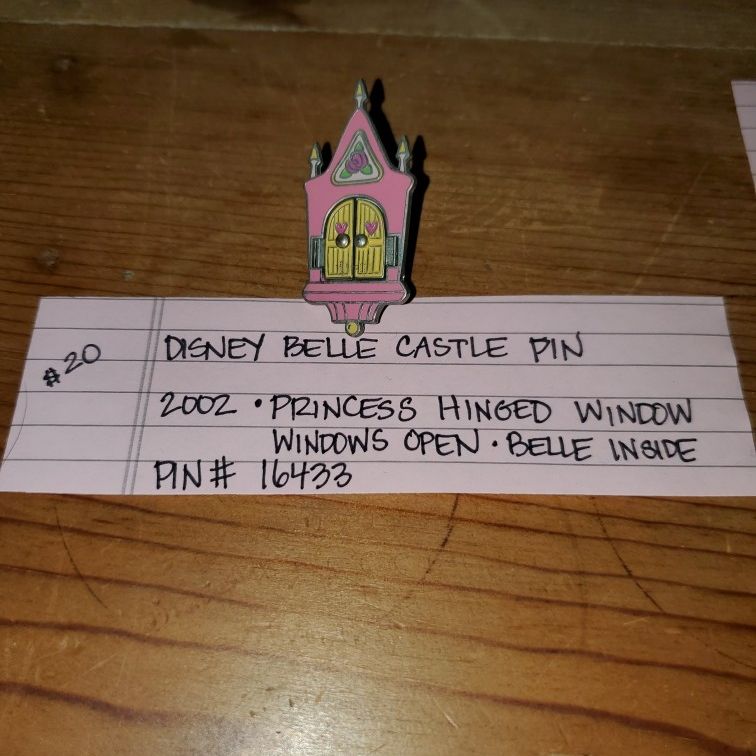 #20
DISNEY BELLE CASTLE PIN
2002 • PRINCESS HINGED WINDOW
WINDOWS OPEN • BELLE INSIDE
PIN# 16433